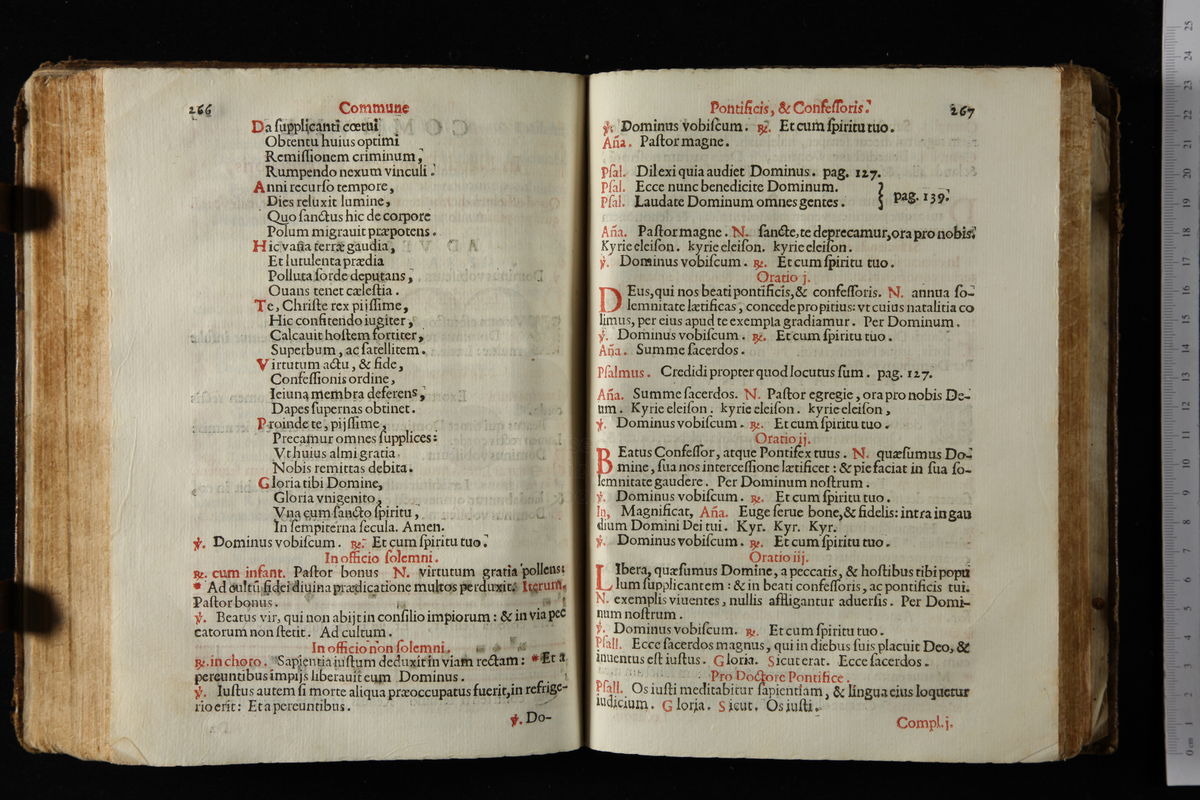 266 Commune
Da ſupplicanti cœtui
Obtentu huius optimi
Remiſſionem criminum,
Rumpendo nexum vinculi.
Anni recurſo tempore,
Dies reluxit lumine,
Quo ſanctus hic de corpore
Polum migrauit præpotens.
Hic vana terræ gaudia,
Et lutulenta prædia
Polluta ſorde deputans,
Ouans tenet cæleſtia.
Te, Chriſte rex pijſſime,
Hic confitendo iugiter,
Calcauit hoſtem fortiter,
Superbum, ac ſatellitem.
Virtutum actu, & fide,
Confeſſionis ordine,
Ieiuna membra deferens,
Dapes ſupernas obtinet.
Proinde te, pijſſime,
Precamur omnes ſupplices:
Vt huius almi gratia
Nobis remittas debita.
Gloria tibi Domine,
Gloria vnigenito,
Vna cum ſancto ſpiritu,
In ſempiterna ſecula. Amen.
℣. Dominus vobiſcum. ℟. Et cum ſpiritu tuo.
In officio ſolemni.
℟. cum infant. Paſtor bonus N. virtutum gratia pollens:
* Ad cultũ fidei diuina prædicatione multos perduxit. Iterum.
Paſtor bonus.
℣. Beatus vir, qui non abijt in conſilio impiorum: & in via pec
catorum non ſtetit. Ad cultum.
In officio non ſolemni.
℟. in choro. Sapientia iuſtum deduxit in viam rectam: * Et a
pereuntibus impijs liberauit eum Dominus.
℣. Iuſtus autem ſi morte aliqua præoccupatus fuerit, in refrige-
rio erit: Et a pereuntibus.
℣. Do-
Pontificis, & Confeſſoris. 267
℣. Dominus vobiſcum. ℟. Et cum ſpiritu tuo.
Aña. Paſtor magne.
Pſal. Dilexi quia audiet Dominus. pag. 127.
Pſal. Ecce nunc benedicite Dominum.
Pſal. Laudate Dominum omnes gentes. } pag. 139.
Aña. Paſtor magne. N. ſancte, te deprecamur, ora pro nobis.
Kyrie eleiſon. kyrie eleiſon. kyrie eleiſon.
℣. Dominus vobiſcum. ℟. Et cum ſpiritu tuo.
Oratio j.
DEus, qui nos beati pontificis, & confeſſoris. N. annua ſo-
lemnitate lætificas, concede propitius: vt cuius natalitia co
limus, per eius apud te exempla gradiamur. Per Dominum.
℣. Dominus vobiſcum. ℟. Et cum ſpiritu tuo.
Aña. Summe ſacerdos.
Pſalmus. Credidi propter quod locutus ſum. pag. 127.
Aña. Summe ſacerdos. N. Paſtor egregie, ora pro nobis De-
um. Kyrie eleiſon. kyrie eleiſon. kyrie eleiſon,
℣. Dominus vobiſcum. ℟. Et cum ſpiritu tuo.
Oratio ij.
BEatus Confeſſor, atque Pontifex tuus. N. quæſumus Do-
mine, ſua nos interceſſione lætificet: & pie faciat in ſua ſo-
lemnitate gaudere. Per Dominum noſtrum.
℣. Dominus vobiſcum. ℟. Et cum ſpiritu tuo.
In, Magnificat, Aña. Euge ſerue bone, & fidelis: intra in gau
dium Domini Dei tui. Kyr. Kyr. Kyr.
℣. Dominus vobiſcum. ℟. Et cum ſpiritu tuo.
Oratio iij.
LIbera, quæſumus Domine, a peccatis, & hoſtibus tibi popu
lum ſupplicantem: & in beati confeſſoris, ac pontificis tui.
N. exemplis viuentes, nullis affligantur aduerſis. Per Domi-
num noſtrum.
℣. Dominus vobiſcum. ℟. Et cum ſpiritu tuo.
Pſall. Ecce ſacerdos magnus, qui in diebus ſuis placuit Deo, &
inuentus eſt iuſtus. Gloria. Sicut erat. Ecce ſacerdos.
Pro Doctore Pontifice.
Pſall. Os iuſti meditabitur ſapientiam, & lingua eius loquetur
iudicium. Gloria. Sicut. Os iuſti.
Compl. j.